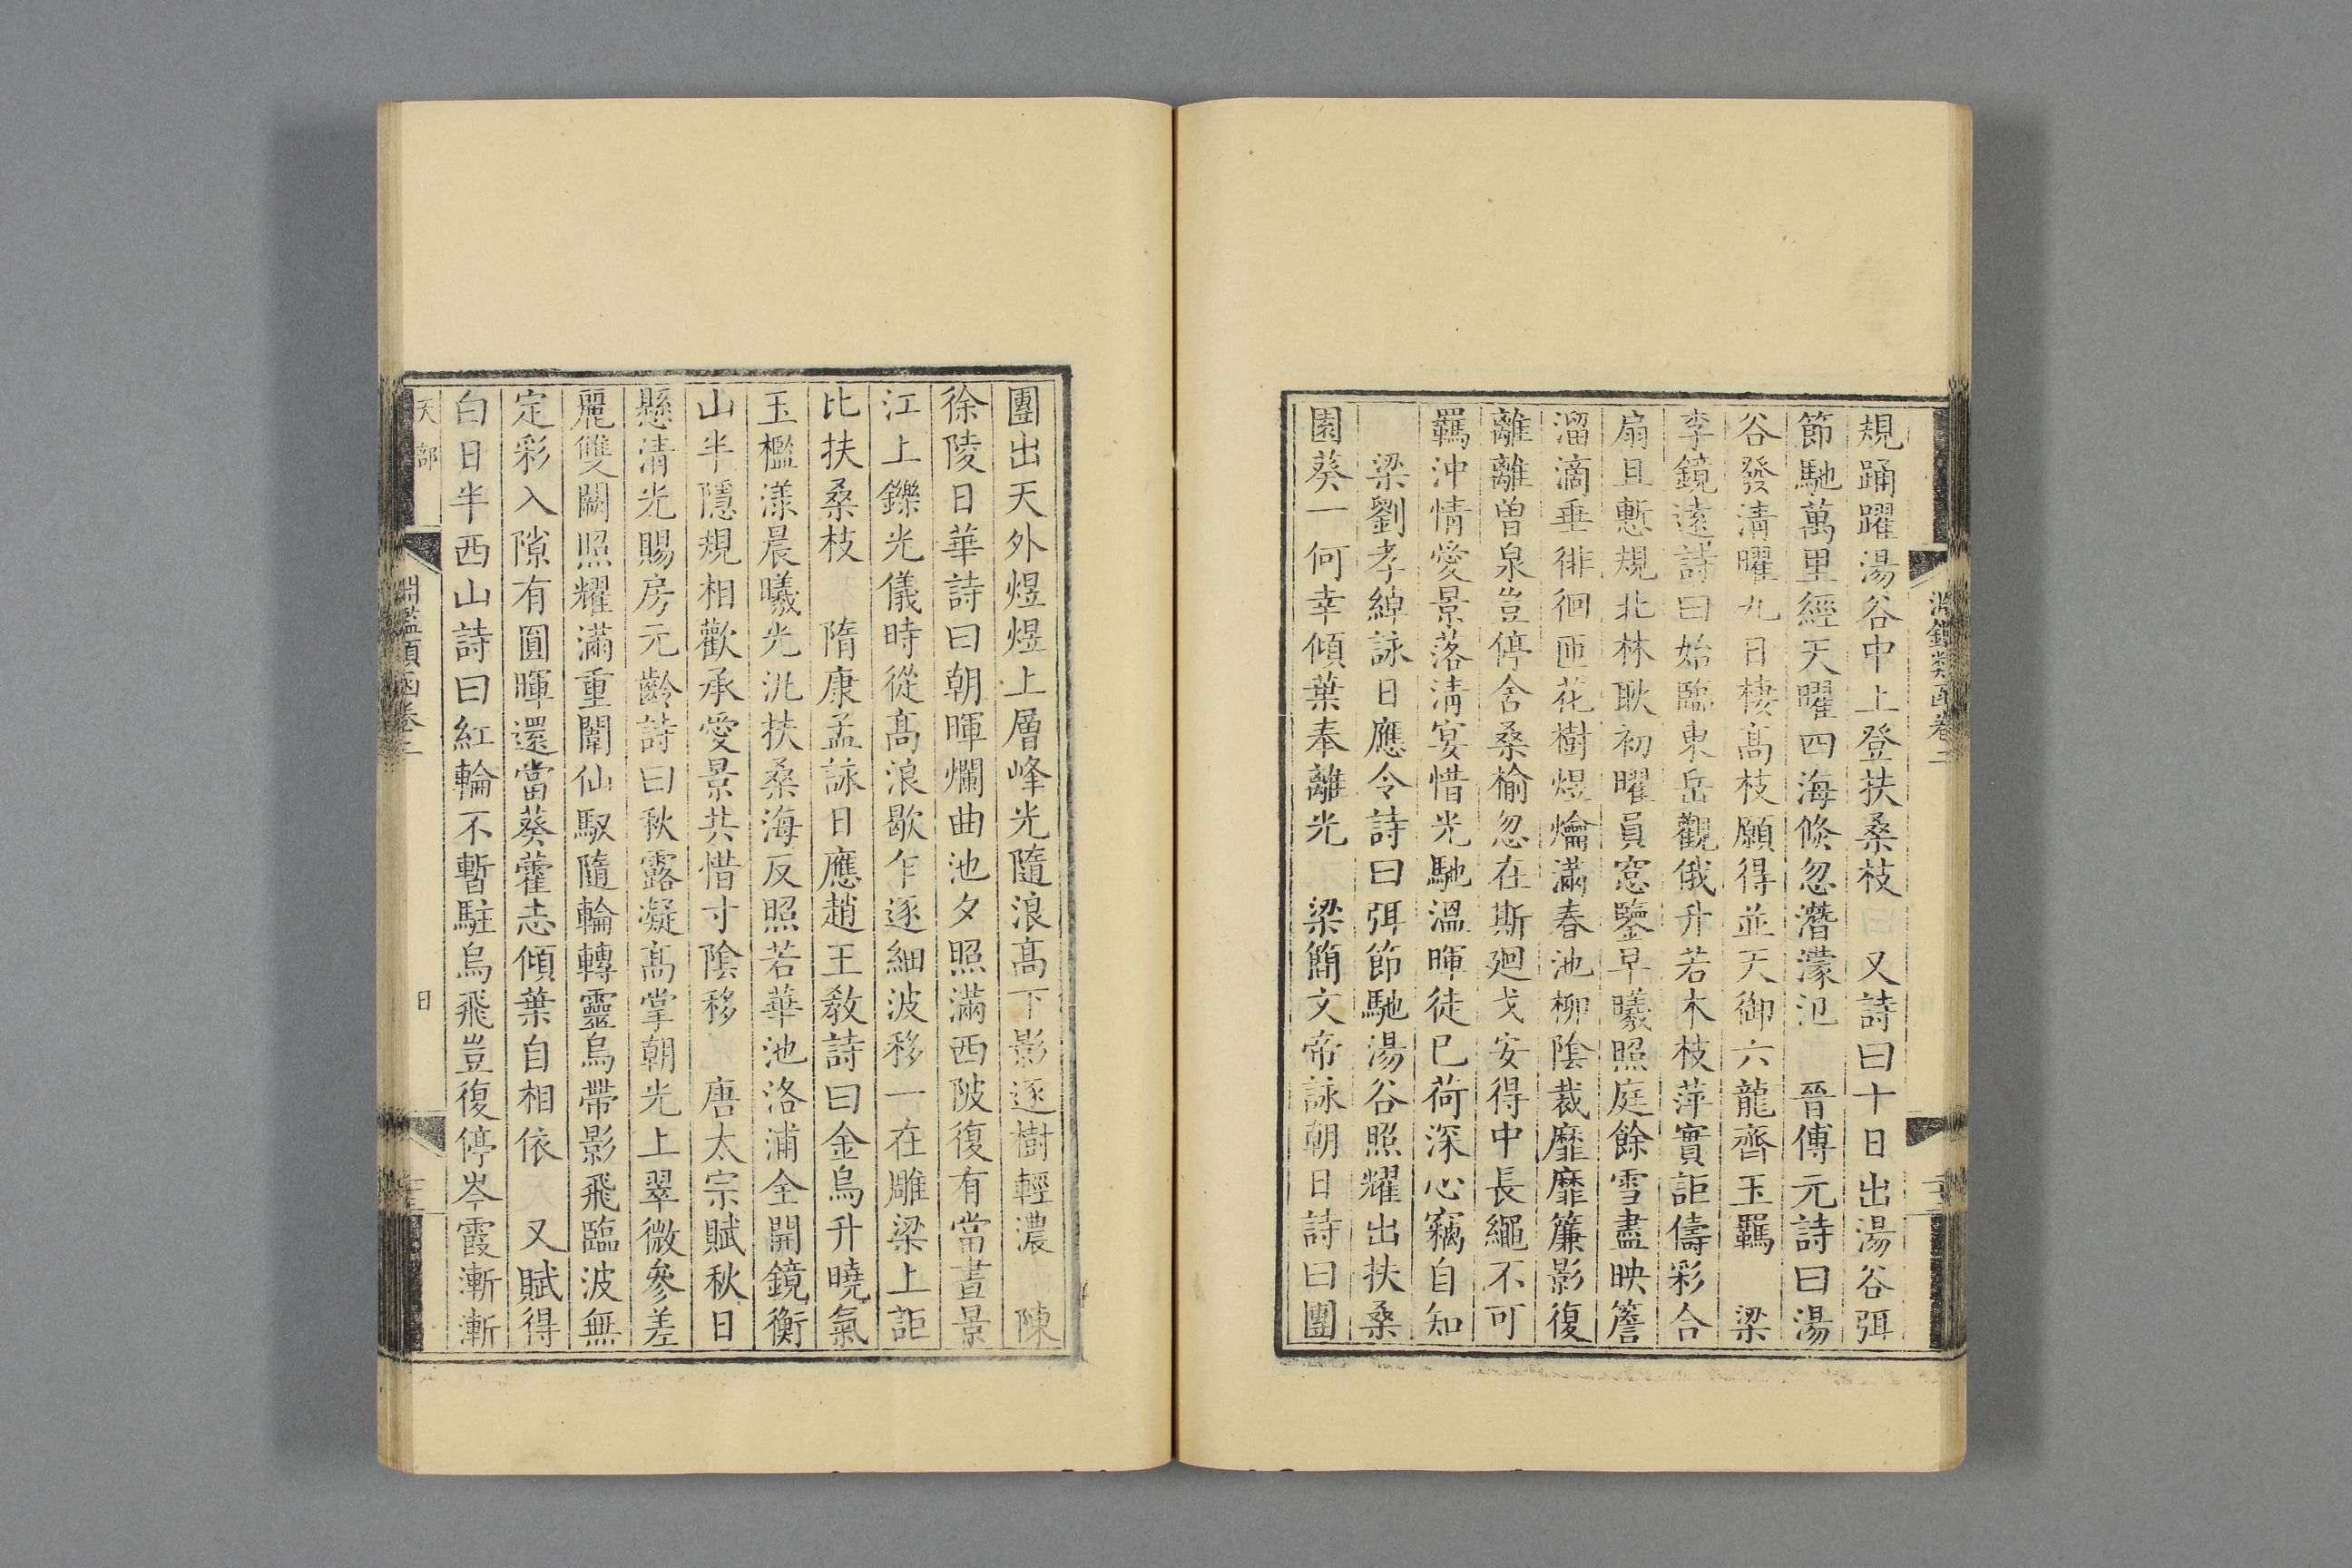 規踊躍湯谷中上登扶桑枝 又詩曰十日出湯谷弭
節馳萬里經天曜四海倏忽潛濛汜 晉傅元詩曰湯
谷發淸曜九日棲高枝願得並天御六龍齊玉羈 梁
李鏡遠詩曰始臨東岳觀俄升若木枝萍實詎儔彩合
扇且慙規北林耿初曜員窓鑒早曦照庭餘雪盡映簷
溜滴垂徘徊匝花樹煜爚滿春池柳陰裁靡靡簾影復
離離曾泉豈停舍桑榆忽在斯廻戈安得中長繩不可
羈沖情愛景落淸宴惜光馳溫暉徒已荷深心竊自知
梁劉孝綽詠日應令詩曰弭節馳湯谷照耀出扶桑
園葵一何幸傾葉奉離光 梁簡文帝詠朝日詩曰團
團出天外煜煜上層峰光隨浪高下影逐樹輕濃 陳
徐陵日華詩曰朝暉爛曲池夕照滿西陂復有當晝景
江上鑠光儀時從高浪歇乍逐細波移一在雕梁上詎
比扶桑枝 隋康孟詠日應趙王敎詩曰金烏升曉氣
玉檻漾晨曦光泚扶桑海反照若華池洛浦全開鏡衡
山半隱規相歡承愛景共惜寸陰移 唐太宗賦秋日
懸淸光賜房元齡詩曰秋露凝高掌朝光上翠微參差
麗雙闕照耀滿重闈仙馭隨輪轉靈烏帶影飛臨波無
定彩入隙有圓暉還當葵藿志傾葉自相依 又賦得
白日半西山詩曰紅輪不暫駐烏飛豈復停岑霞漸漸
天部
淵鑑類函卷二
日